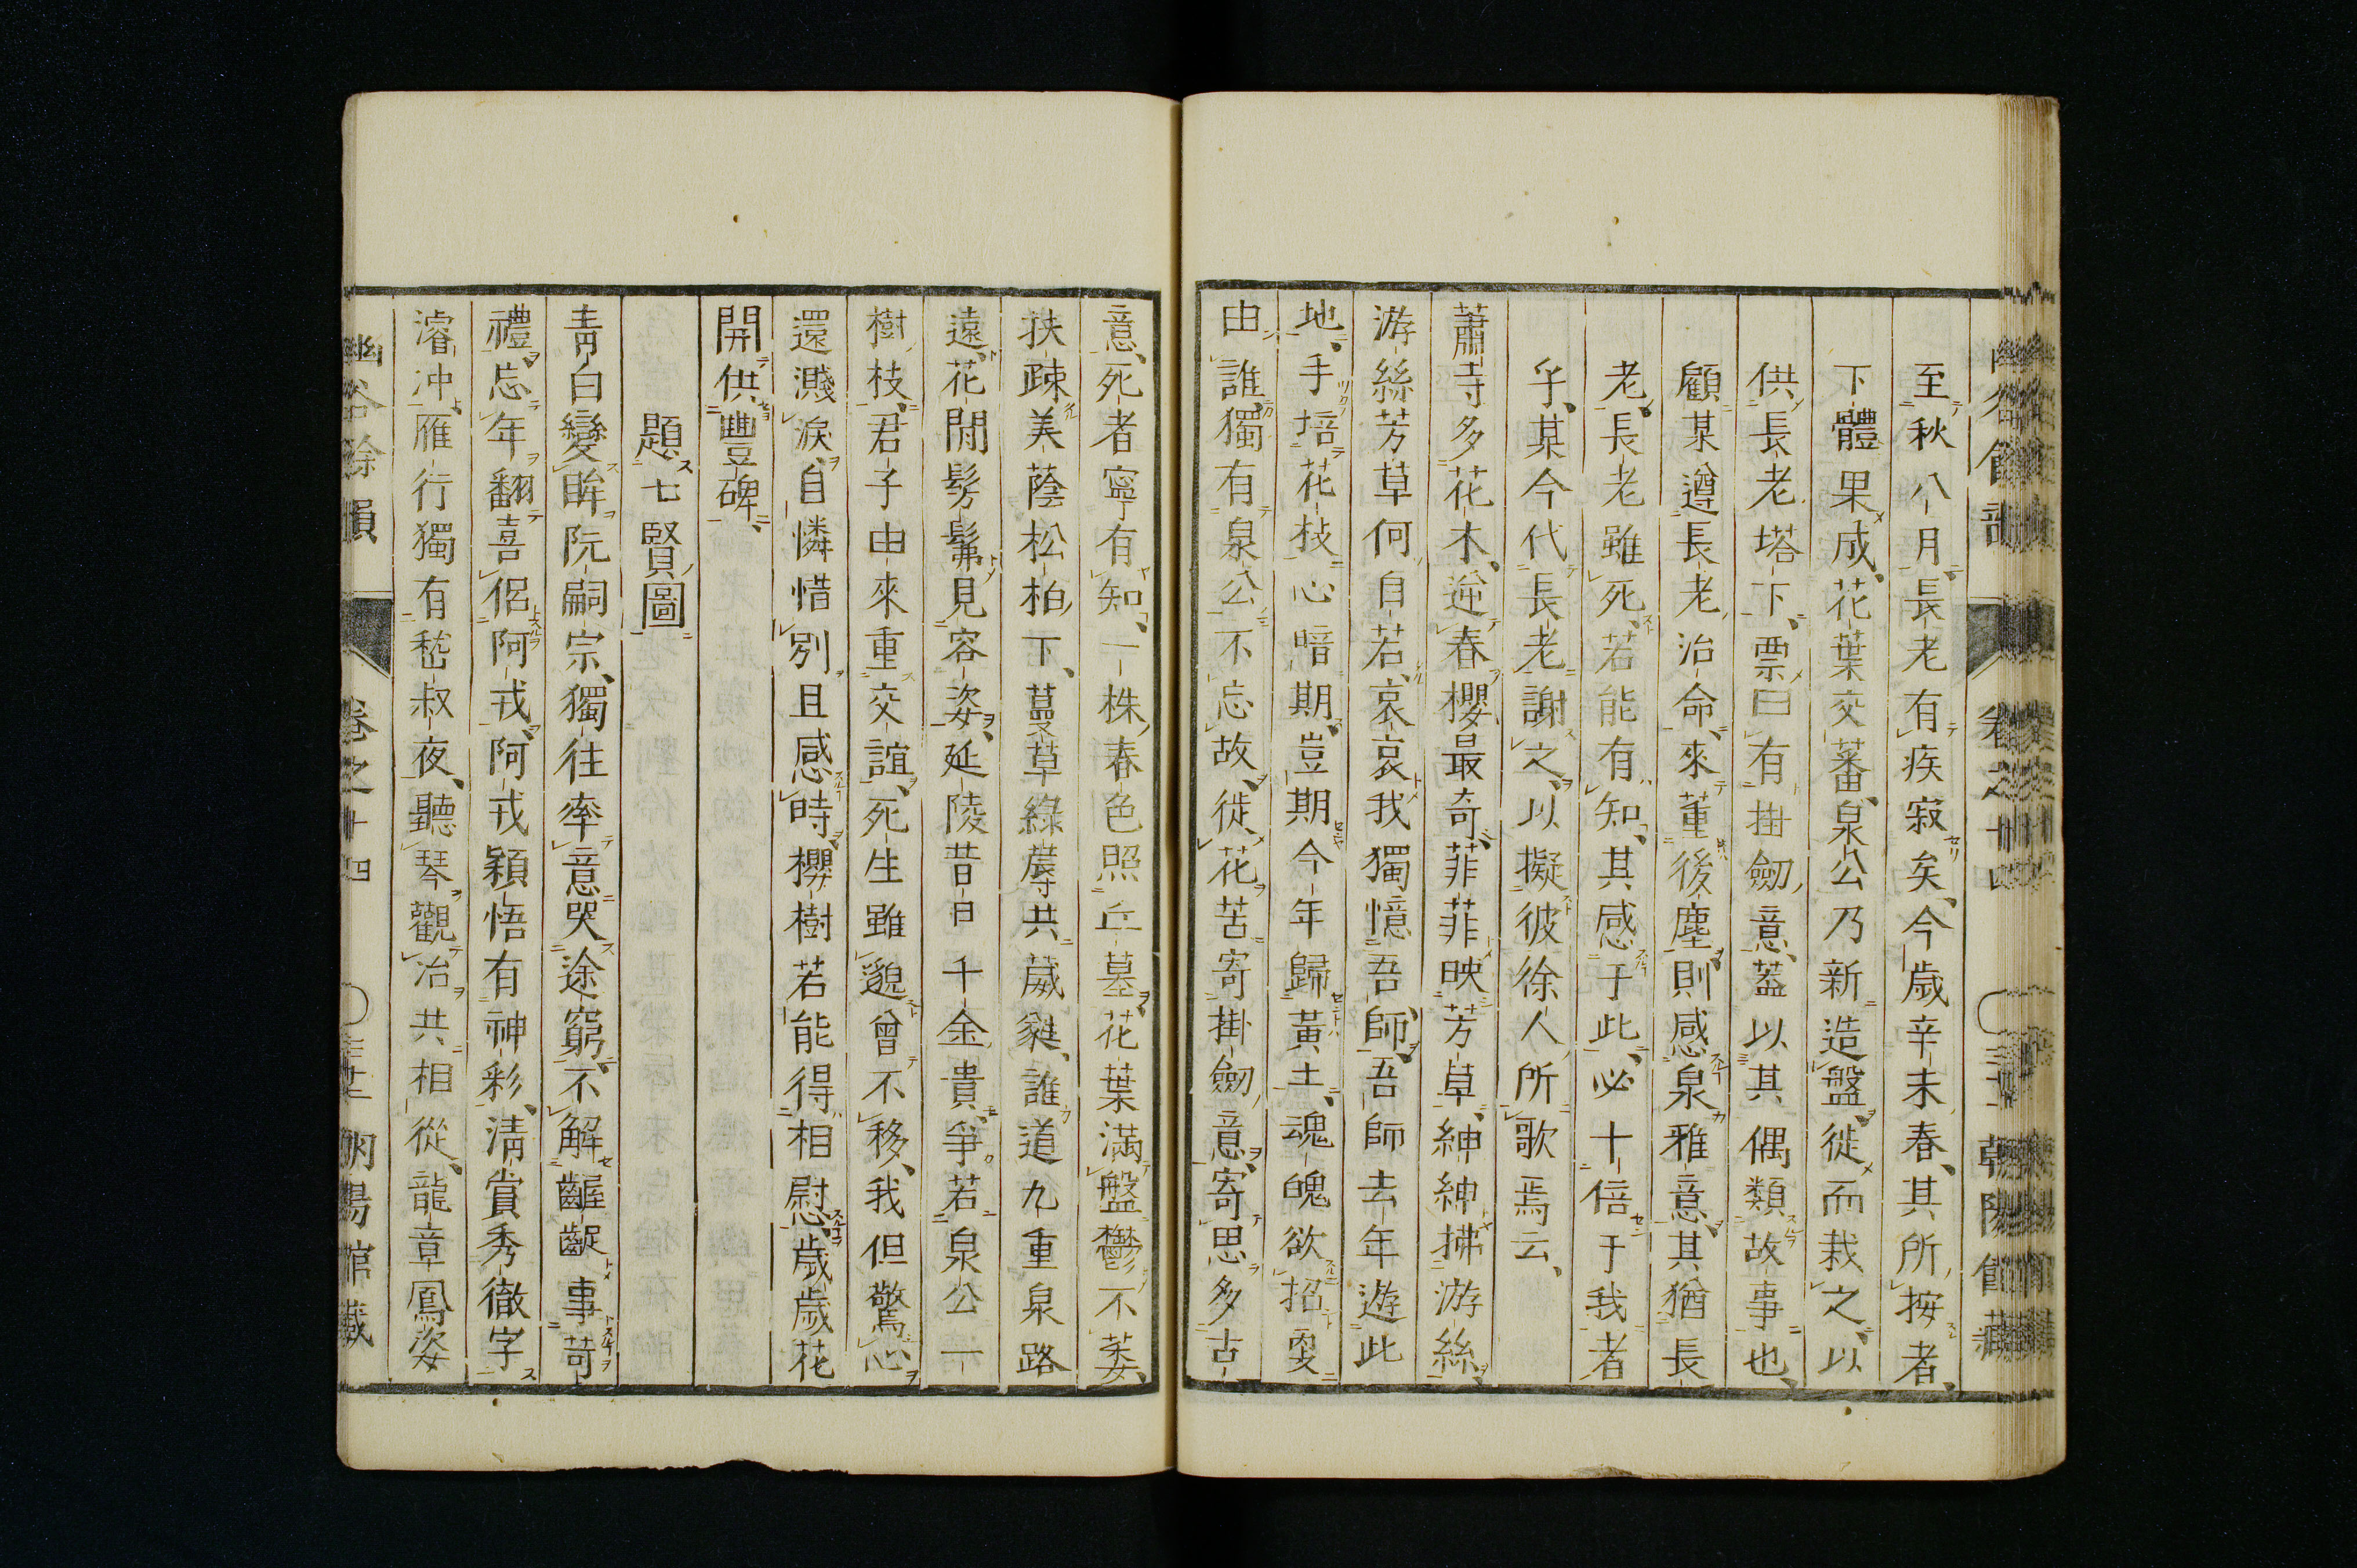 至秋八月長老有疾寂矣今歲辛未春其所按者
下體果成花葉交蕃泉公乃新造盤徙而栽之以
供長老塔下票曰有掛劒意蓋以其偶類故事也
顧某遵長老治命來董後塵則感泉雅意其猶長
老長老雖死若能有知其感于此必十倍于我者
乎某今代長老謝之以擬彼徐人所歌焉云
蕭寺多花木逆春櫻最奇菲菲映芳草紳紳拂游絲
游絲芳草何自若哀哀我獨憶吾師吾師去年遊此
地手培花枝心暗期豈期今年歸黃土魂魄欲招
由誰獨有泉公不忘故徙花苦寄掛劒意寄思多古
意死者寧有知一株春色照丘墓花葉滿盤鬱不萎
扶疎美蔭松柏下蔓草綠蓐共葳蕤誰道九重泉路
遠花閒髣髴見容姿延陵昔日千金貴爭若泉公一
樹枝君子由來重交誼死生雖邈曾不移我但驚心
還濺淚自憐惜別且感時櫻樹若能得相慰歲歲花
開供豐碑
題七賢圖
青白變眸阮嗣宗獨往率意哭途窮不解齷齪事苛
禮忘年翻喜侶阿戎阿戎穎悟有神彩清賞秀徹字
濬冲雁行獨有嵇叔夜聽琴觀冶共相從龍章鳳姿
幽谷餘韻 卷之十四 朝陽館藏